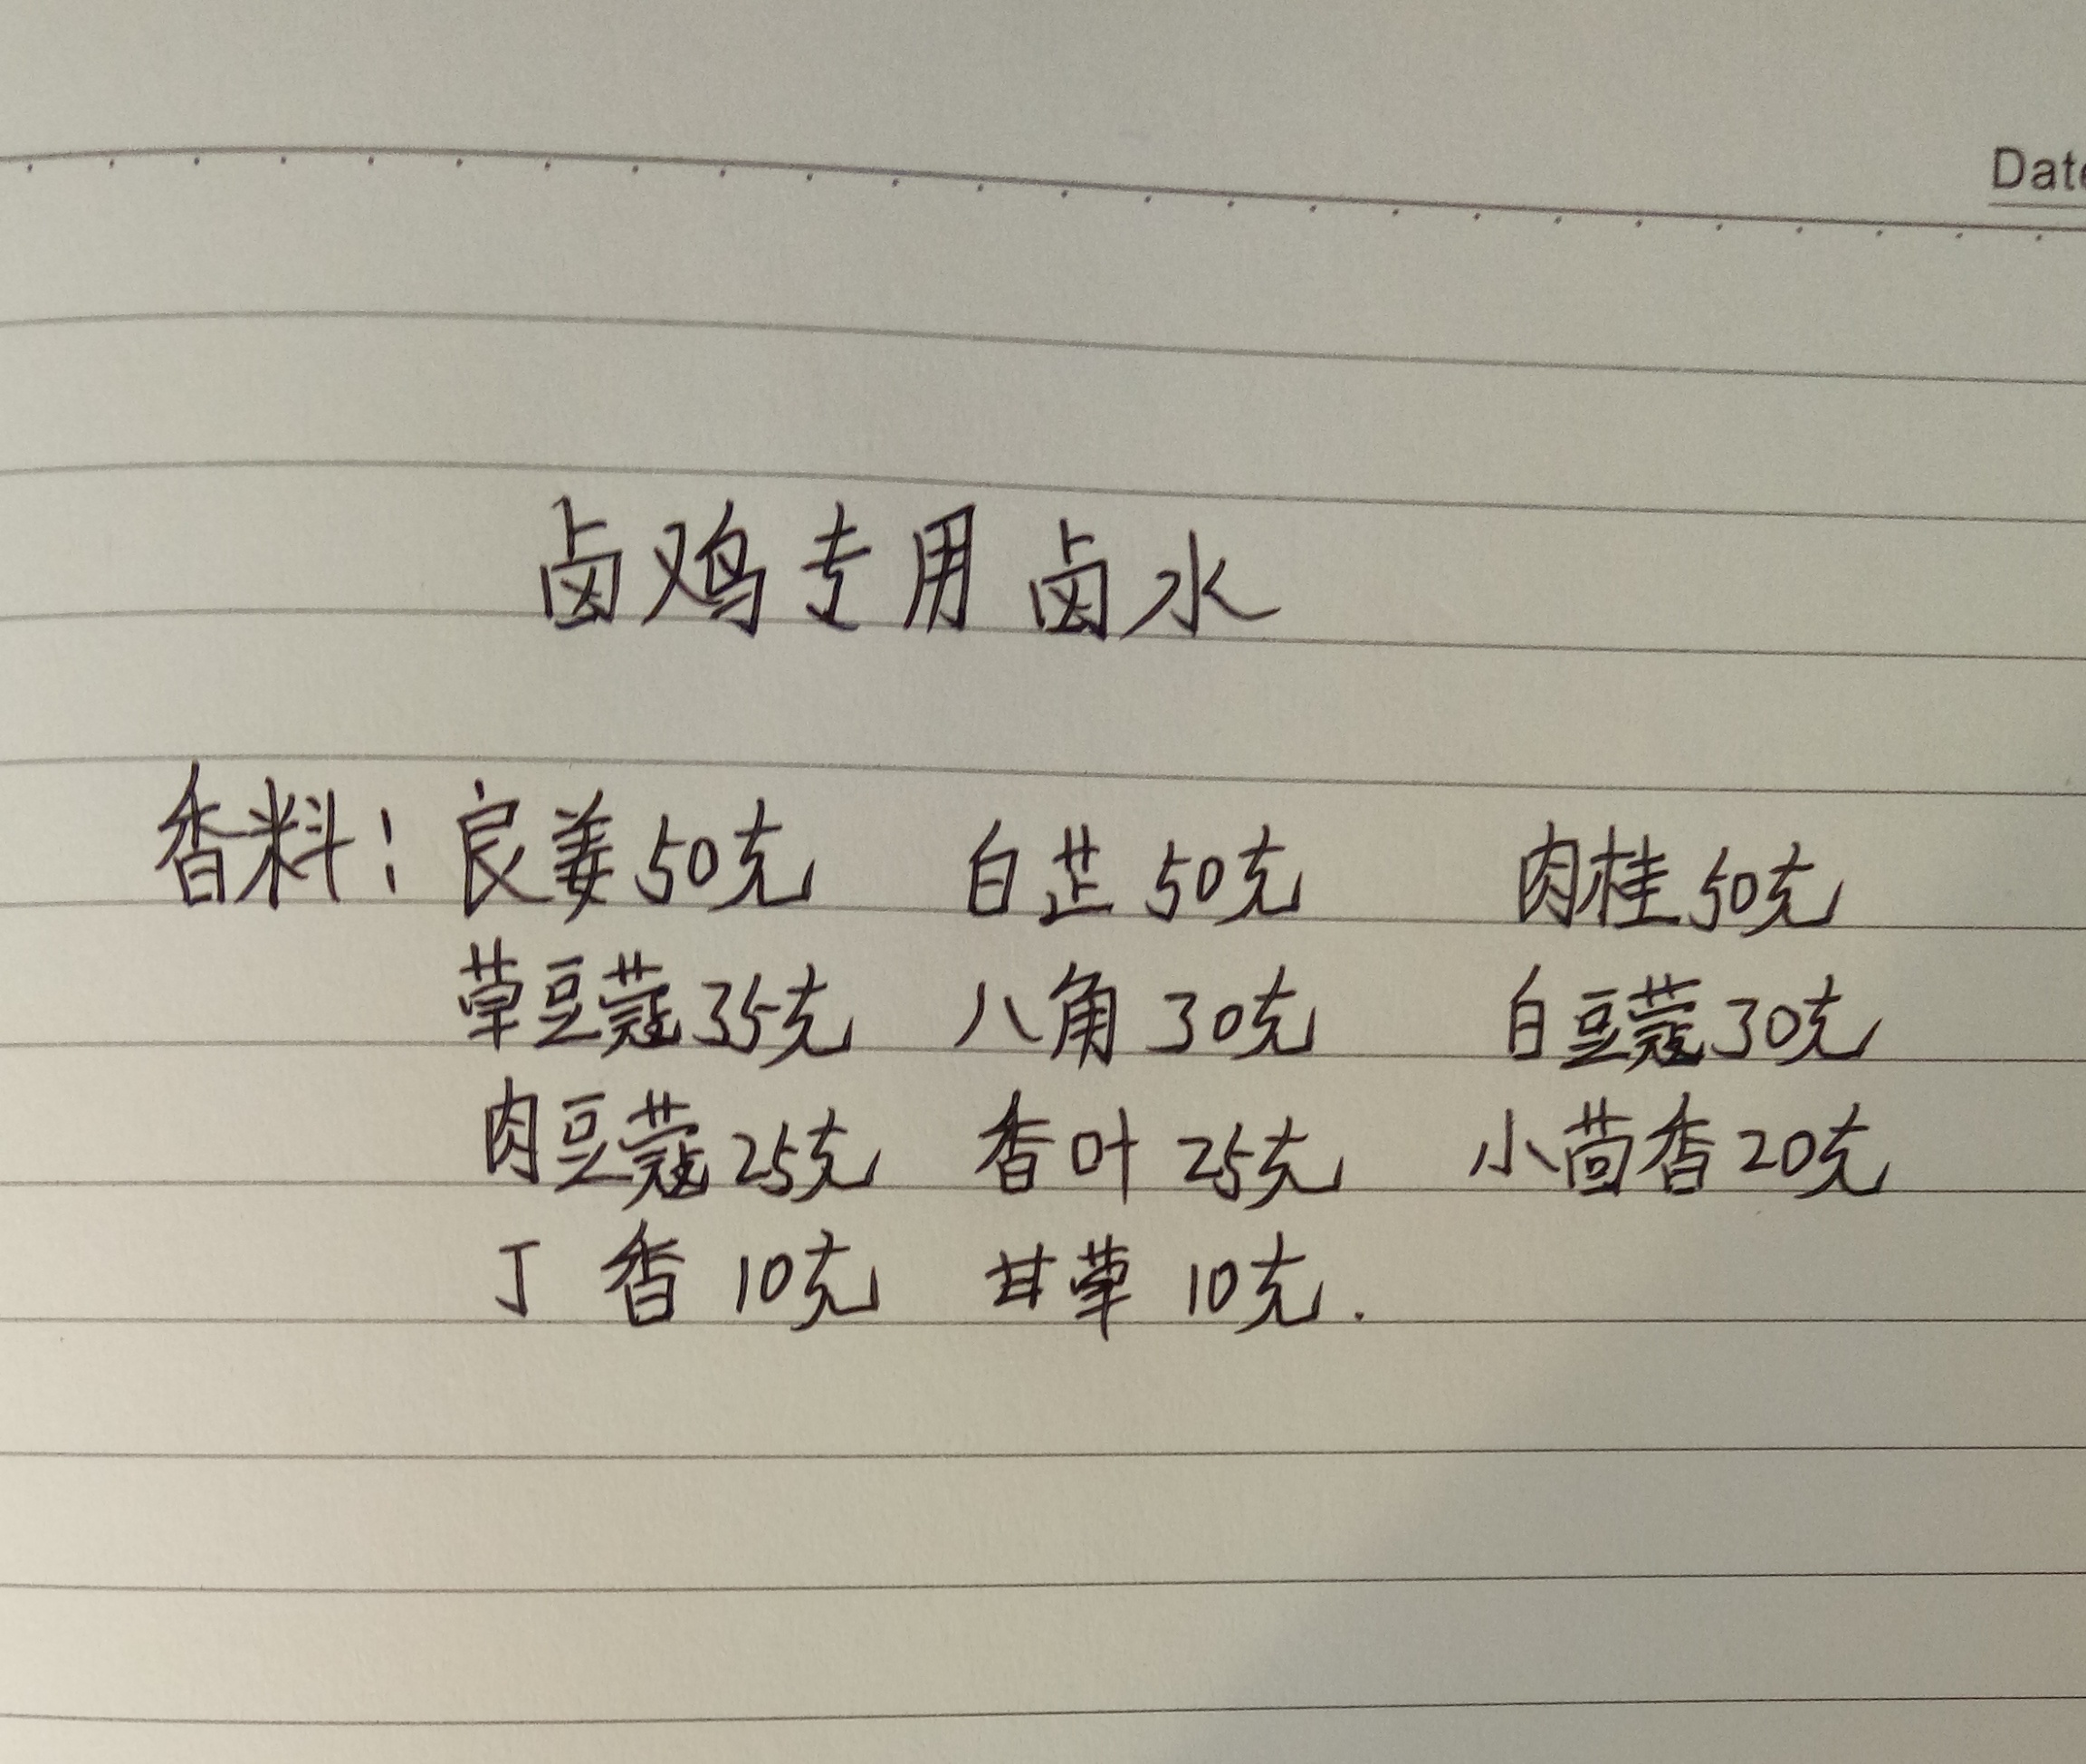 Date
卤鸡专用卤水
香料: 良姜50克 白芷50克 肉桂50克
草豆蔻35克 八角30克 白豆蔻30克
肉豆蔻25克 香叶25克 小茴香20克
丁香10克 甘草10克.